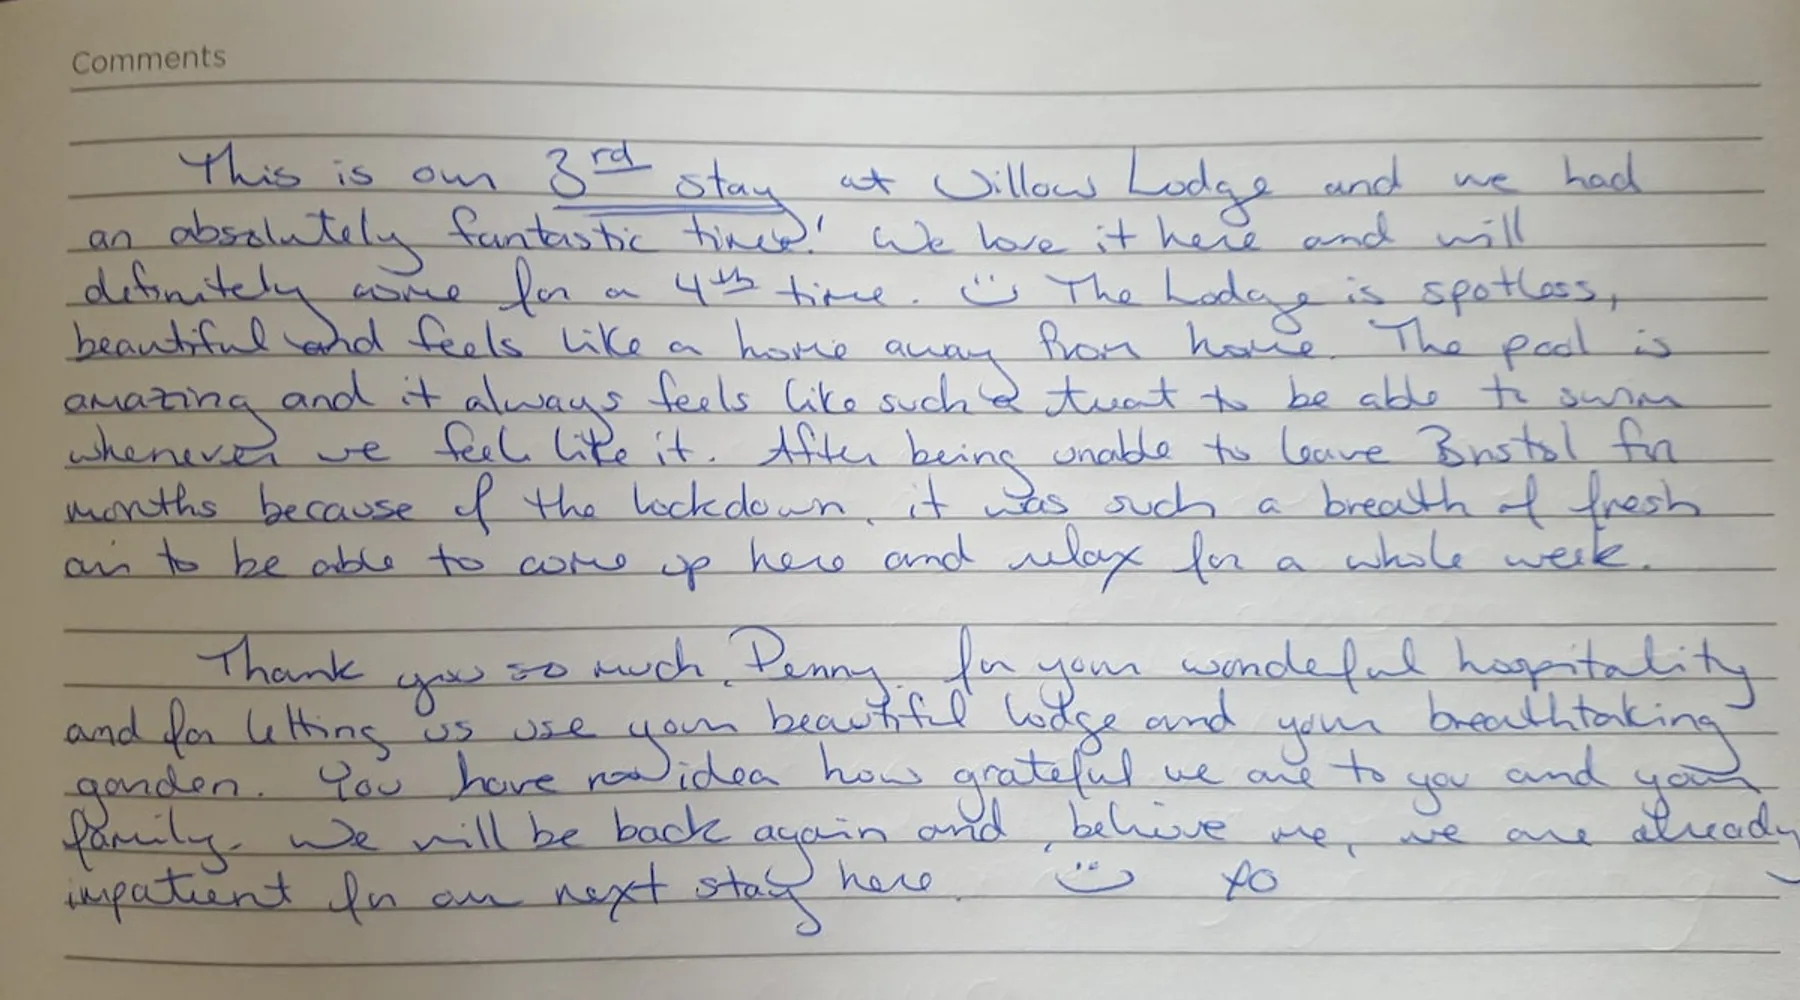 Comments
This is our 3rd stay at Willow Lodge and we had
an absolutely fantastic time! We love it here and will
definitely come for a 4th time. :) The Lodge is spotless,
beautiful and feels like a home away from home. The pool is
amazing and it always feels like such a treat to be able to swim
whenever we feel like it. After being unable to leave Bristol for
months because of the lockdown, it was such a breath of fresh
air to be able to come up here and relax for a whole week.
Thank you so much, Penny, for your wondeful hospitality
and for letting us use your beautiful lodge and your breathtaking
garden. You have no idea how grateful we are to you and your
family. We will be back again and, believe me, we are already
impatient for our next stay here. :) xo